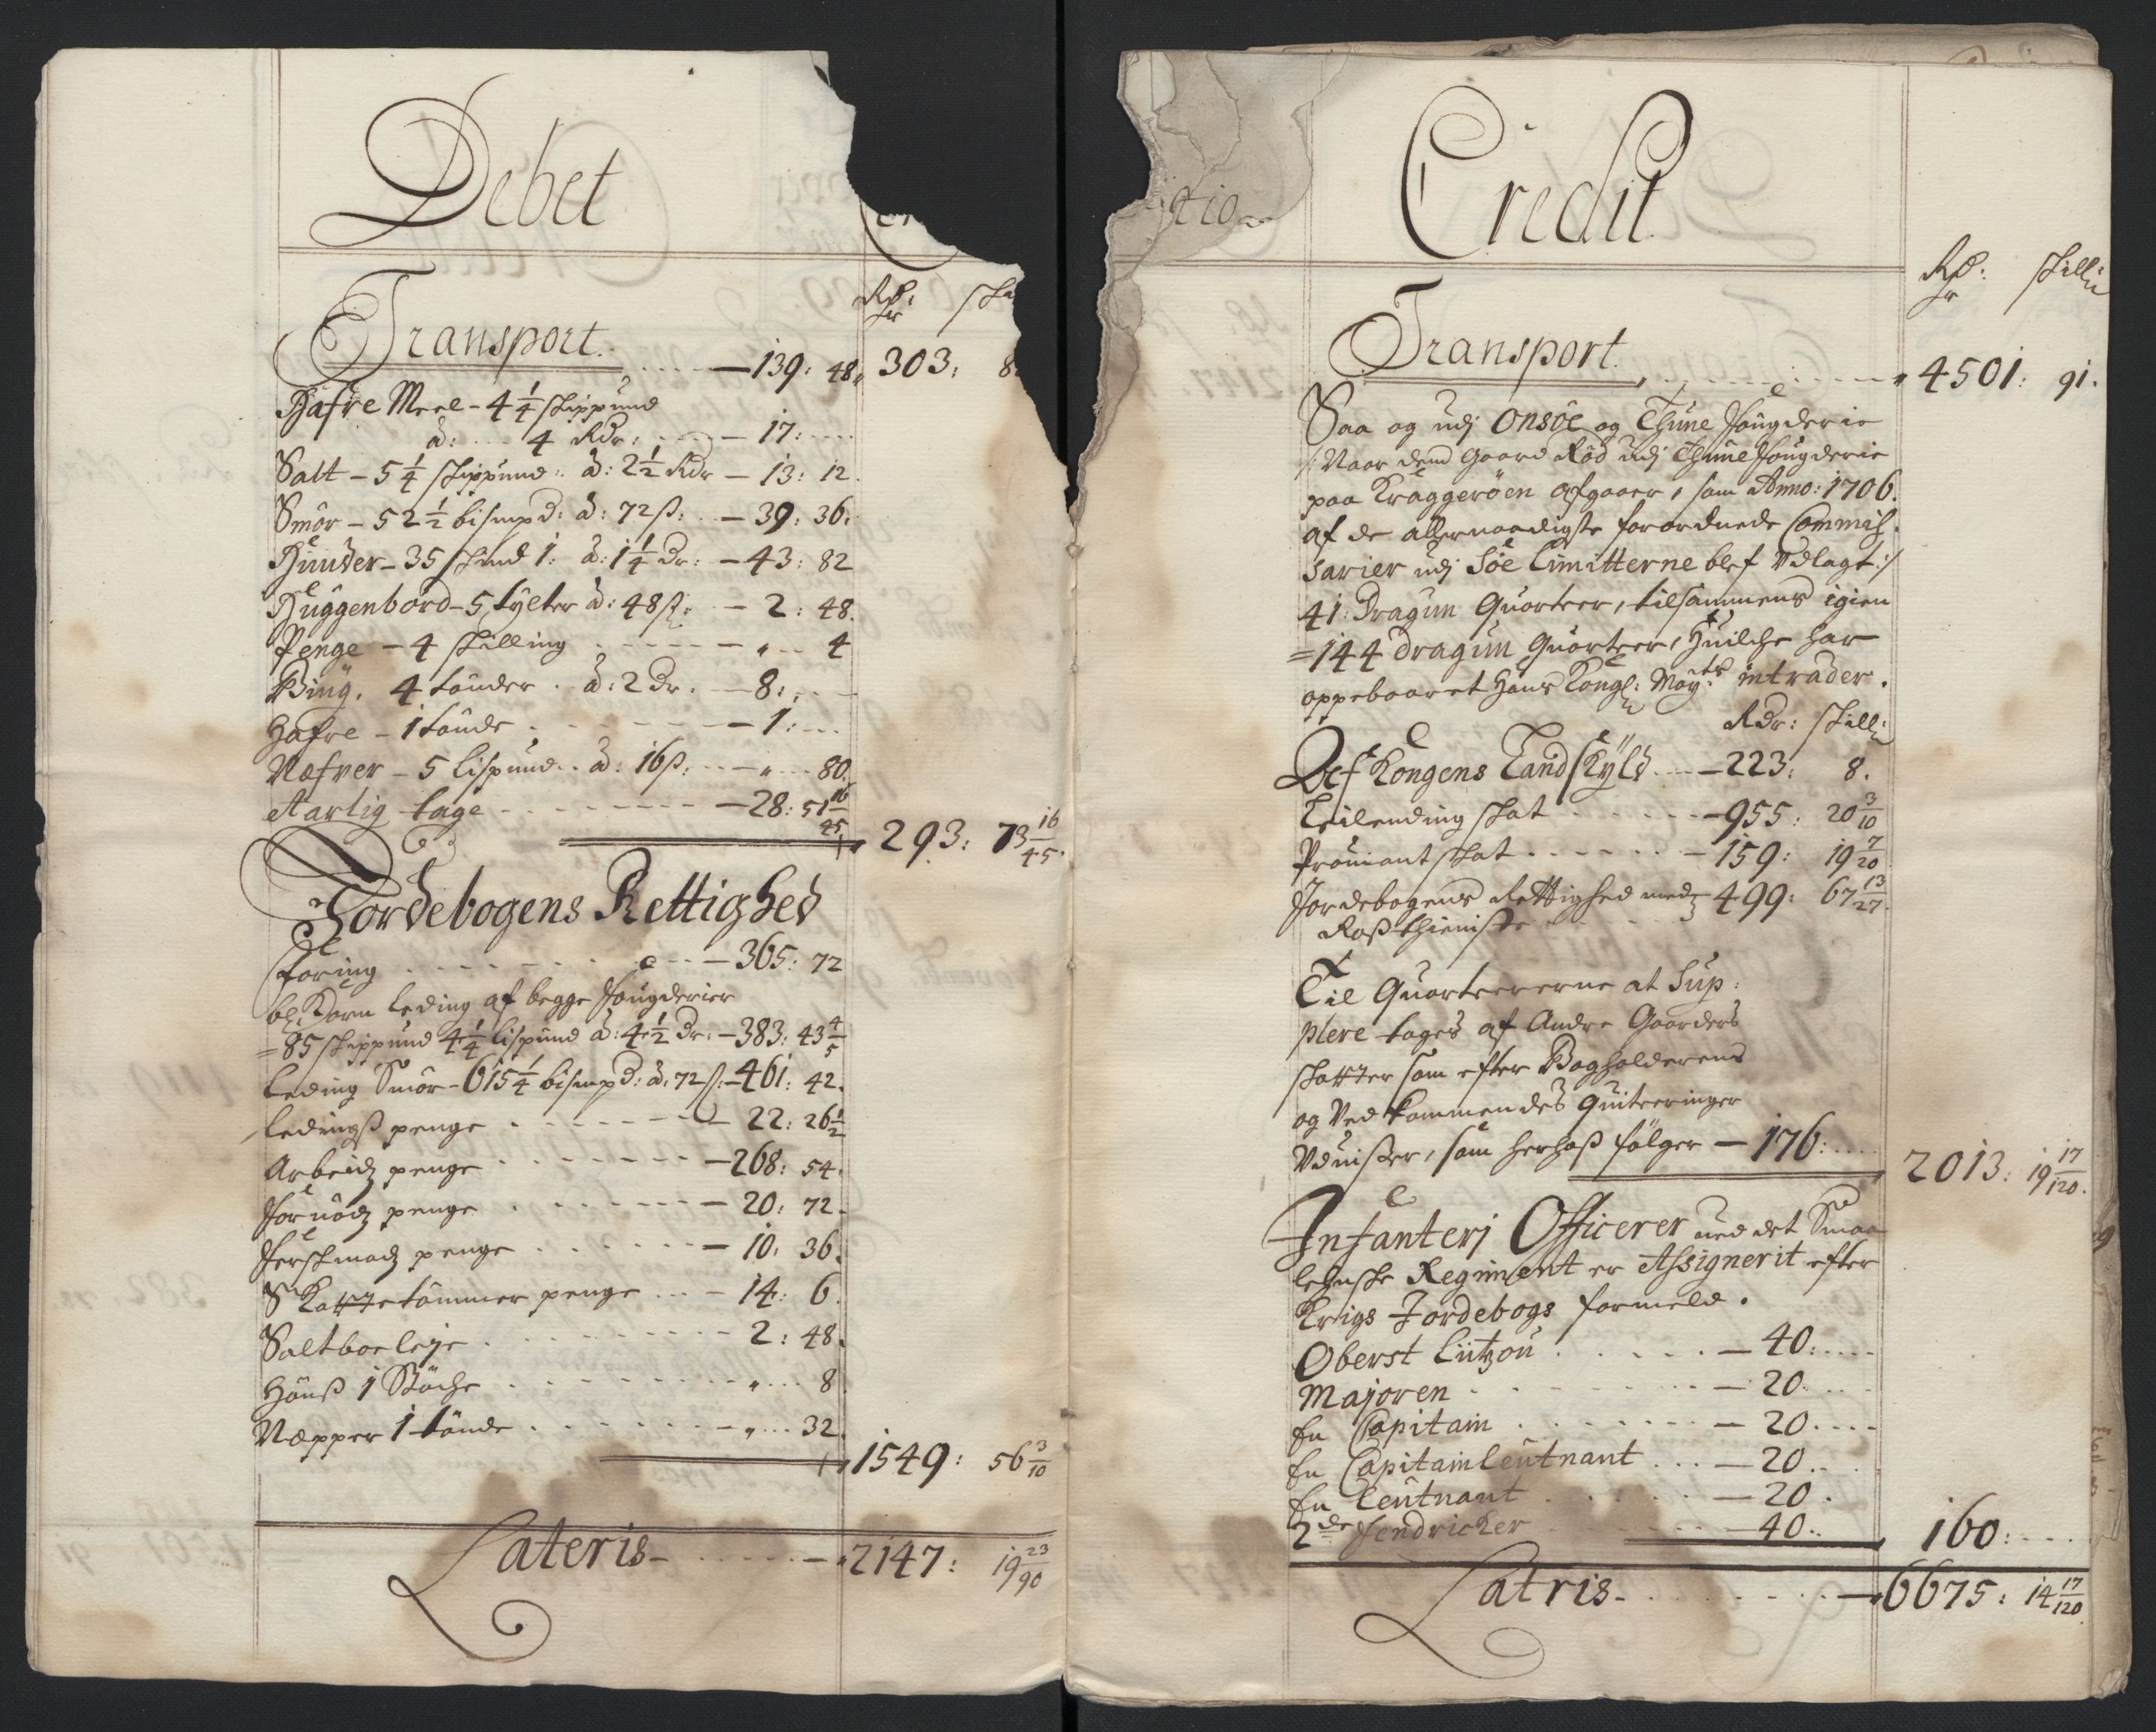 Debet
Rdr: ski
Transport. — 139: 48, 303: 8
Hafre Meel – 4 1/4 skippund
à: 4 Rdr: — 17:
Salt – 5 1/4 skippund: à: 2 1/2 Rdr — 13: 12.
Smör – 52 1/2 bismpd: à: 72 ß: — 39: 36:
Huuder – 35 à: 1 1/4 Dr: — 43: 82
Huggenbord – 5 tylter à: 48 ß: — 2: 48.
Penge – 4 skilling — " 4
Biug. 4 tönder. à: 2 Dr. — 8:
Hafre – 1 tönde — 1:
Næfver – 5 lispund. à: 16 ß: — " 80.
Aarlig tage — 28: 51 16/45
293: 73 16/45.
Jordebogens Rettighed
foring — 365: 72
bl: Korn leding af begge fougderier
= 85 skippund 4 1/4 lispund à: 4 1/2 Dr: — 383: 43 4/5
Leding Smör – 615 1/4 bismpd: à: 72 ß: — 461: 42.
Ledingß penge — 22: 26 1/2
Arbeidz penge — 268: 54.
fornödz penge — 20: 72.
ferskmadz penge — 10: 36.
Skattetömmer penge — 14: 6.
Saltboe leje — 2: 48.
Hönß 1 Stöche — " 8
Næpper 1 tönde — " 32.
1549: 56 3/10
Lateris — 2147: 19 23/90
tio
Credit
Rdr: skill:
Transport. 4501: 91.
Saa og udj Onsöe og Thune fougderie
/: Naar dend Gaard Röd udj Thune fougderie
paa Kraggeröen afgaaer, som Anno: 1706.
af de allernaadigste forordnede Commis-
sarier udj Söe Limitterne blef Udlagt :/
41: Dragun Quorteer, tilsammens igien
= 144 Dragun Quorteer, Huilche har
oppebaaret Hans Kongl: Mayts intrader.
Rdr: skill:
Af Kongens Landskyld — 223: 8.
Leilending skat — 955: 20 3/10
Prouiant skat — 159: 19 7/20
Jordebogens Rettighed med — 499: 67 13/27.
Roßthieniste
Til Quorteererne at Sup:
plere tages af Andre Gaarders
skatter som efter Bogholderens
og Vedkommendes Quiteeringer
Uduiser, som herhoß fölger — 176:
2013: 19 17/120.
Infanterj Officerer ued det Smaa-
lehnske Regiment er Assignerit efter
Krigs Jordebogs formeld.
Oberst Lützou — 40:
Majoren — 20.
En Capitain — 20.
En Capitainleutnant — 20.
En Leutnant — 20.
2de fendricker — 40.
160:
Latris — 6675: 14 17/120.